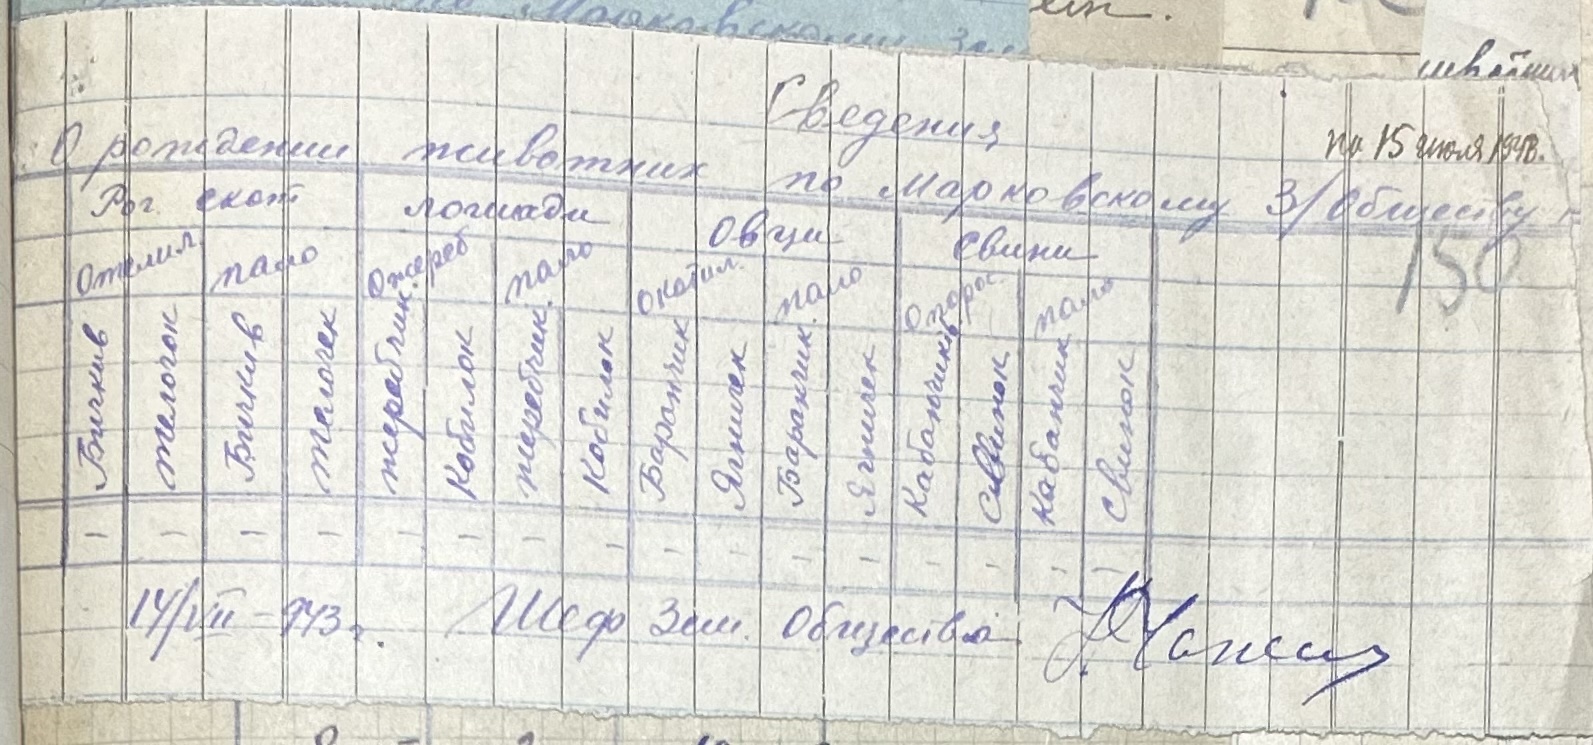 Марковскому зем
Сведения
на 15 июля 1943г.
О рождении животних по Марковскому З/Обществу
150
Рог. скот лошади Овци Свини
Отелил. пало Ожереб пало окотил. пало Опорос. пало
Бичкив телочок Бичкив телочек жеребчик. Кобилок жеребчик. Кобилок Баранчик Ягничек Баранчик. Ягничек Кабанчиків Свинок Кабанчик Свинок
– – – – – – – – – – – – – – – –
14/VII – 943 г. Шеф Зем. Общества